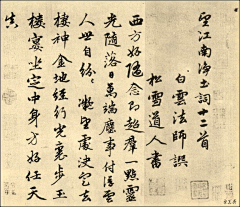 望江南淨土詞十二首
白雲法師譔
松雪道人書
西方好随念即超群一點靈
光随落日萬端塵事付浮雲
人世自紛々凝望處決定去
棲神金地經行光裏步玉
樓宴坐定中身方好任天
真